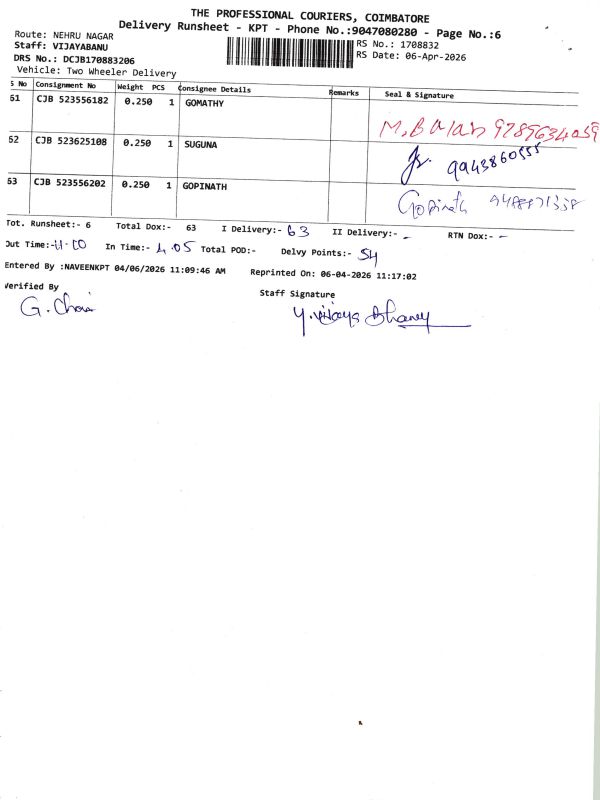 THE PROFESSIONAL COURIERS, COIMBATORE
Delivery Runsheet - KPT - Phone No.:9047080280 - Page No.:6
Route: NEHRU NAGAR
RS No.: 1708832
Staff: VIJAYABANU
RS Date: 06-Apr-2026
DRS No.: DCJB170883206
Vehicle: Two Wheeler Delivery
S No Consignment No Weight PCS Consignee Details Remarks Seal & Signature
61 CJB 523556182 0.250 1 GOMATHY
M.Balan 9789634059
62 CJB 523625108 0.250 1 SUGUNA
9943860555
63 CJB 523556202 0.250 1 GOPINATH
Gopinath
Tot. Runsheet:- 6 Total Dox:- 63 I Delivery:- 63 II Delivery:- - RTN Dox:- -
Out Time:- 11-00 In Time:- 4.05 Total POD:- Delvy Points:- 54
Entered By :NAVEENKPT 04/06/2026 11:09:46 AM Reprinted On: 06-04-2026 11:17:02
Verified By Staff Signature
G.